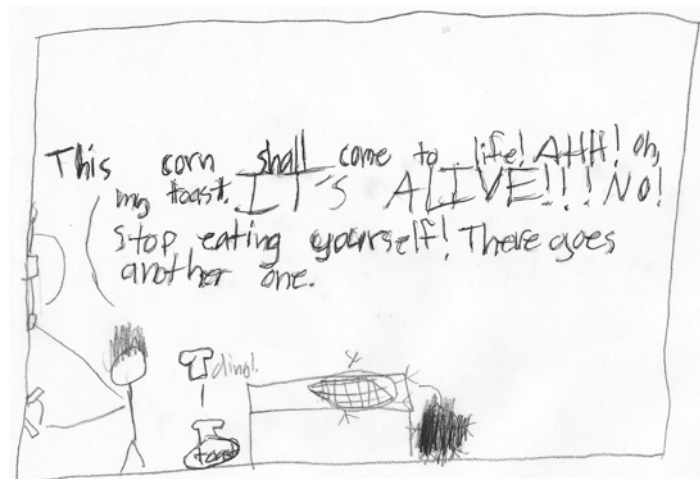 This corn shall come to life! AHH! Oh,
my toast. IT'S ALIVE!!! NO!
Stop eating yourself! There goes
another one.
ding!
toast